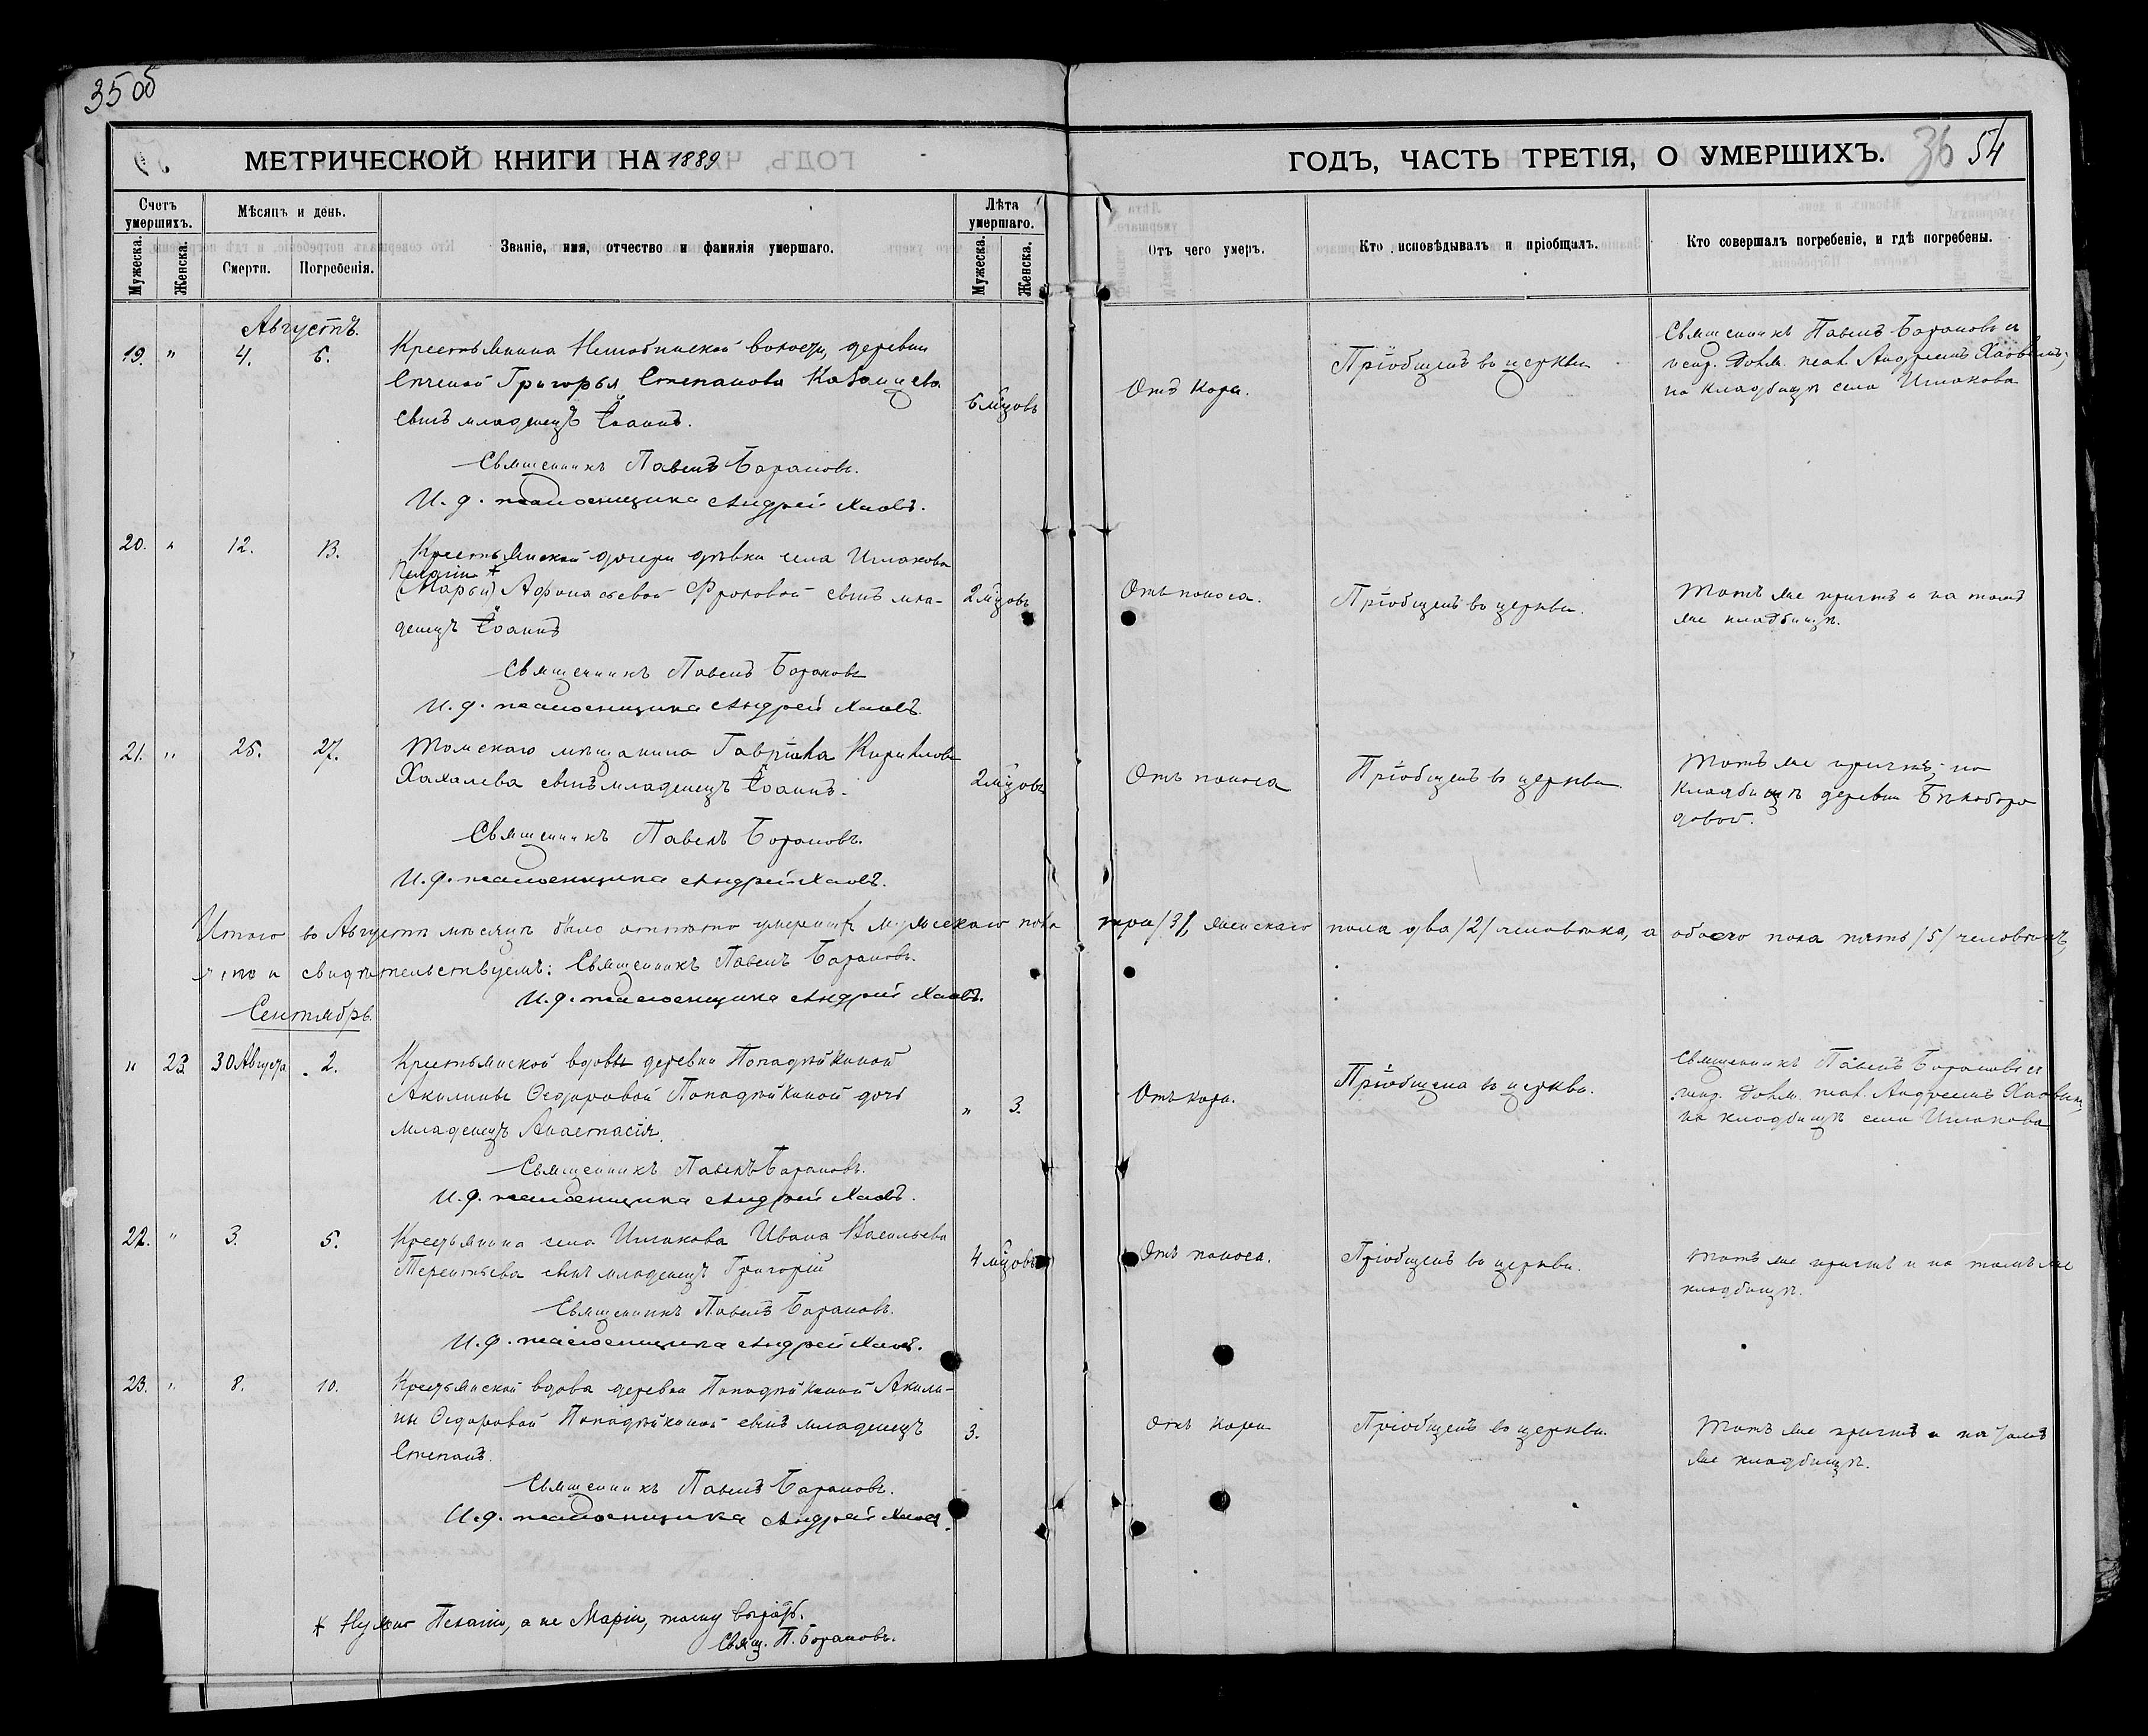 35 об
МЕТРИЧЕСКОЙ КНИГИ НА 1889
ГОДЪ, ЧАСТЬ ТРЕТІЯ, О УМЕРШИХЪ.
36 54
Счетъ умершихъ.
Мѣсяцъ и день.
Званіе, имя, отчество и фамилія умершаго.
Лѣта умершаго.
Отъ чего умеръ.
Кто исповѣдывалъ и пріобщалъ.
Кто совершалъ погребеніе, и гдѣ погребены.
Мужеска.
Женска.
Смерти.
Погребенія.
Мужеска.
Женска.
Августъ.
19. " 4. 6.
Крестьянина волости, деревни
Григорья Степанова
сынъ младенецъ Іоаннъ.
6 м҃цовъ
Отъ кори.
Пріобщенъ въ церкви
Священникъ Павелъ Барановъ и
Андреемъ
на кладбищѣ села
Священникъ Павелъ Барановъ.
И. д. псаломщика Андрей
20. " 12. 13.
Крестьянской дочери дѣвки села
Пелагіи *
(Марьи) Афонасьевой Фроловой сынъ мла-
денецъ Іоаннъ
2 м҃цовъ
Отъ поноса.
Пріобщенъ въ церкви.
Тотъ же причтъ и на томъ
же кладбищѣ.
Священникъ Павелъ Барановъ
И. д. псаломщика Андрей
21. " 25. 27.
Томскаго мѣщанина Гавріила Кирилова
Хахалева сынъ младенецъ Іоаннъ.
2 м҃цовъ
Отъ поноса
Пріобщенъ въ церкви.
Тотъ же причтъ; на
кладбищѣ деревни Бѣлоборо
довой.
Священникъ Павелъ Барановъ.
И. д. псаломщика Андрей
Итого въ Августѣ мѣсяцѣ было отпѣто умершихъ мужескаго пола три /3/, женскаго пола два /2/ человѣка, а обоего пола пять /5/ человѣкъ,
что и свидѣтельствуемъ: Священникъ Павелъ Барановъ.
И. д. псаломщика Андрей
Сентябрь.
" 23 30 Августа 2.
Крестьянской вдовы деревни Попадѣйкиной
Акилины Ѳедоровой Попадѣйкиной дочь
младенецъ Анастасія.
" 3.
Отъ кори.
Пріобщена въ церкви.
Священникъ Павелъ Барановъ и
Андреемъ
на кладбищѣ села
Священникъ Павелъ Барановъ.
И. д. псаломщика Андрей
22. " 3. 5.
Крестьянина села Ивана Васильева
Терентьева сынъ младенецъ Григорій
4 м҃цовъ
Отъ поноса.
Пріобщенъ въ церкви.
Тотъ же причтъ и на томъ же
кладбищѣ.
Священникъ Павелъ Барановъ.
И. д. псаломщика Андрей
23. " 8. 10.
Крестьянской вдова деревни Попадѣйкиной Акили-
ны Ѳедоровой Попадѣйкиной сынъ младенецъ
Степанъ.
3.
Отъ кори
Пріобщенъ въ церкви.
Тотъ же причтъ и на томъ
же кладбищѣ.
Священникъ Павелъ Барановъ.
И. д. псаломщика Андрей
* Нужно Пелагіи, а не Маріи, тому вѣрить.
Свящ. П. Барановъ.